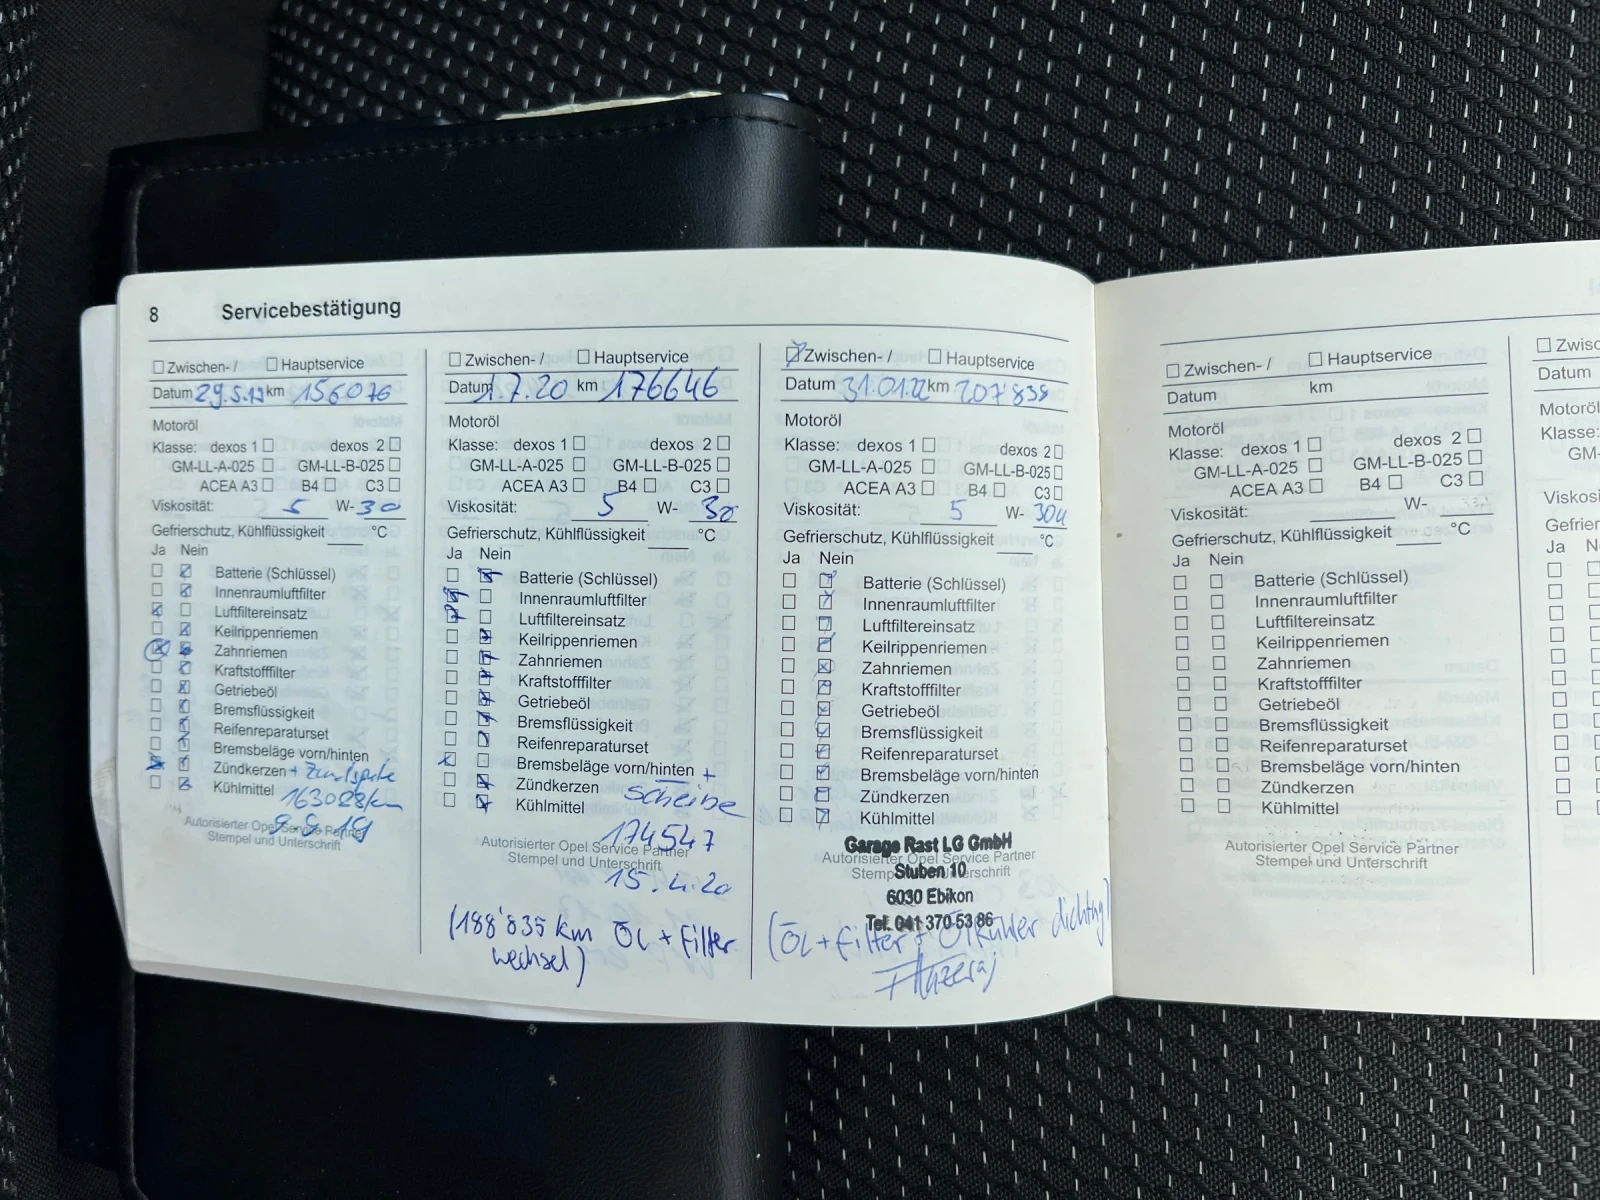 8 Servicebestätigung
Zwischen- / Hauptservice
Datum 29.5.19 km 156076
Motoröl
Klasse: dexos 1 dexos 2
GM-LL-A-025 GM-LL-B-025
ACEA A3 B4 C3
Viskosität: 5 W-30
Gefrierschutz, Kühlflüssigkeit °C
Ja Nein
Batterie (Schlüssel)
Innenraumluftfilter
Luftfiltereinsatz
Keilrippenriemen
Zahnriemen
Kraftstofffilter
Getriebeöl
Bremsflüssigkeit
Reifenreparaturset
Bremsbeläge vorn/hinten
Zündkerzen +
Kühlmittel 163028km
9.9.19
Autorisierter Opel Service Partner
Stempel und Unterschrift
Zwischen- / Hauptservice
Datum 1.7.20 km 176646
Motoröl
Klasse: dexos 1 dexos 2
GM-LL-A-025 GM-LL-B-025
ACEA A3 B4 C3
Viskosität: 5 W- 30
Gefrierschutz, Kühlflüssigkeit °C
Ja Nein
Batterie (Schlüssel)
Innenraumluftfilter
Luftfiltereinsatz
Keilrippenriemen
Zahnriemen
Kraftstofffilter
Getriebeöl
Bremsflüssigkeit
Reifenreparaturset
Bremsbeläge vorn/hinten +
Zündkerzen scheibe
Kühlmittel
174547
Autorisierter Opel Service Partner
Stempel und Unterschrift
15.4.20
(188'835 km ÖL + Filter
wechsel)
Zwischen- / Hauptservice
Datum 31.01.22 km 207'838
Motoröl
Klasse: dexos 1 dexos 2
GM-LL-A-025 GM-LL-B-025
ACEA A3 B4 C3
Viskosität: 5 W- 30
Gefrierschutz, Kühlflüssigkeit °C
Ja Nein
Batterie (Schlüssel)
Innenraumluftfilter
Luftfiltereinsatz
Keilrippenriemen
Zahnriemen
Kraftstofffilter
Getriebeöl
Bremsflüssigkeit
Reifenreparaturset
Bremsbeläge vorn/hinten
Zündkerzen
Kühlmittel
Garage Rast LG GmbH
Autorisierter Opel Service Partner
Stempel und Unterschrift
Stuben 10
6030 Ebikon
Tel. 041 370 53 86
(ÖL + Filter + Ölkühler dichtug)
Zwischen- / Hauptservice
Datum km
Motoröl
Klasse: dexos 1 dexos 2
GM-LL-A-025 GM-LL-B-025
ACEA A3 B4 C3
Viskosität: W-
Gefrierschutz, Kühlflüssigkeit °C
Ja Nein
Batterie (Schlüssel)
Innenraumluftfilter
Luftfiltereinsatz
Keilrippenriemen
Zahnriemen
Kraftstofffilter
Getriebeöl
Bremsflüssigkeit
Reifenreparaturset
Bremsbeläge vorn/hinten
Zündkerzen
Kühlmittel
Autorisierter Opel Service Partner
Stempel und Unterschrift
Zwisc
Datum
Motoröl
Klasse:
GM-
Viskosi
Gefrier
Ja N